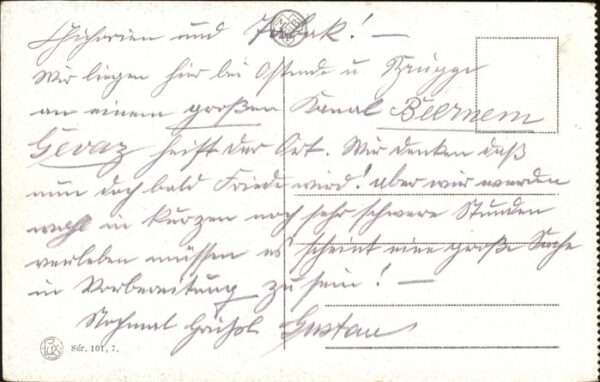 Zichorien und Tabak! —
Wir liegen hier bei Ostende u Brügge
an einem großen Kanal Beernem
Gevaz heißt der Ort. Wir denken daß
nun doch bald Friede wird! aber wir werden
wohl in kurzen noch sehr schwere Stunden
verleben müssen es scheint eine große Sache
in Vorbereitung zu sein! —
Nochmal Gustav
Sér. 101, 7.